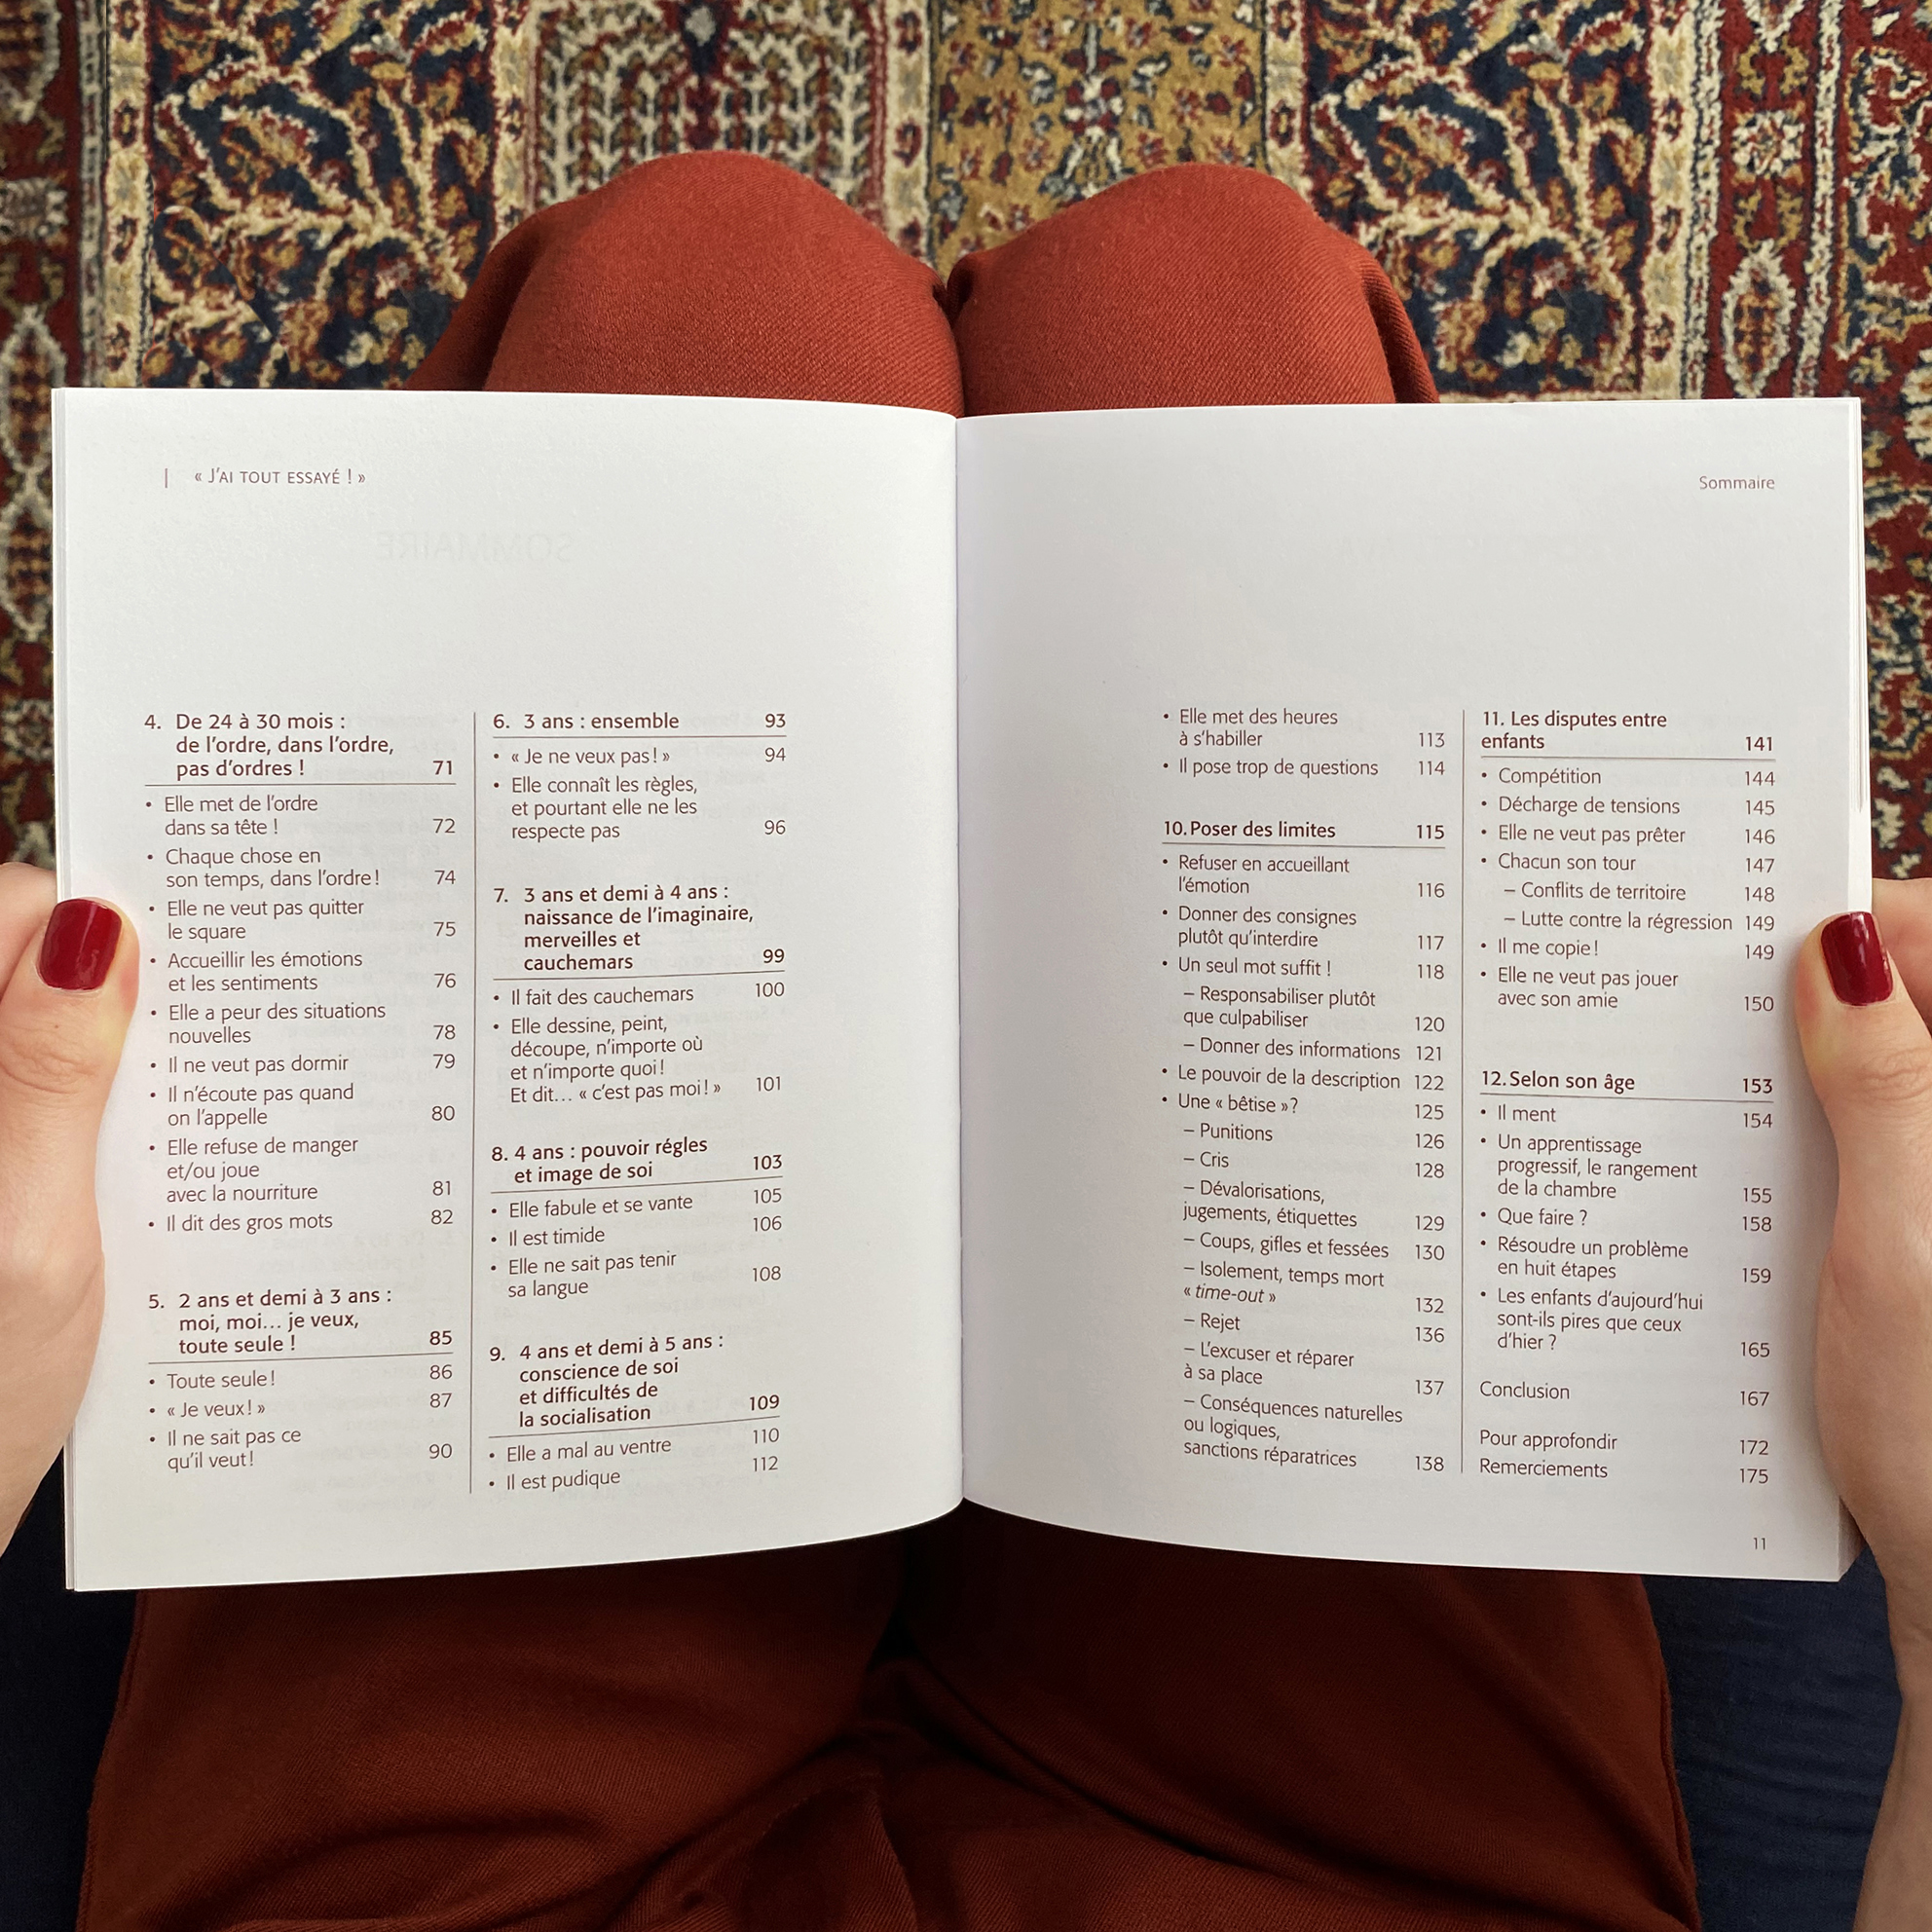 | « J'AI TOUT ESSAYÉ ! »
SOMMAIRE
4. De 24 à 30 mois :
de l'ordre, dans l'ordre,
pas d'ordres ! 71
• Elle met de l'ordre
dans sa tête ! 72
• Chaque chose en
son temps, dans l'ordre! 74
• Elle ne veut pas quitter
le square 75
• Accueillir les émotions
et les sentiments 76
• Elle a peur des situations
nouvelles 78
• Il ne veut pas dormir 79
• Il n'écoute pas quand
on l'appelle 80
• Elle refuse de manger
et/ou joue
avec la nourriture 81
• Il dit des gros mots 82
5. 2 ans et demi à 3 ans :
moi, moi... je veux,
toute seule ! 85
• Toute seule! 86
• « Je veux! » 87
• Il ne sait pas ce
qu'il veut! 90
6. 3 ans : ensemble 93
• « Je ne veux pas! » 94
• Elle connaît les règles,
et pourtant elle ne les
respecte pas 96
7. 3 ans et demi à 4 ans :
naissance de l'imaginaire,
merveilles et
cauchemars 99
• Il fait des cauchemars 100
• Elle dessine, peint,
découpe, n'importe où
et n'importe quoi!
Et dit... « c'est pas moi! » 101
8. 4 ans : pouvoir régles
et image de soi 103
• Elle fabule et se vante 105
• Il est timide 106
• Elle ne sait pas tenir
sa langue 108
9. 4 ans et demi à 5 ans :
conscience de soi
et difficultés de
la socialisation 109
• Elle a mal au ventre 110
• Il est pudique 112
Sommaire
• Elle met des heures
à s'habiller 113
• Il pose trop de questions 114
10. Poser des limites 115
• Refuser en accueillant
l'émotion 116
• Donner des consignes
plutôt qu'interdire 117
• Un seul mot suffit ! 118
– Responsabiliser plutôt
que culpabiliser 120
– Donner des informations 121
• Le pouvoir de la description 122
• Une « bêtise »? 125
– Punitions 126
– Cris 128
– Dévalorisations,
jugements, étiquettes 129
– Coups, gifles et fessées 130
– Isolement, temps mort
« time-out » 132
– Rejet 136
– L'excuser et réparer
à sa place 137
– Conséquences naturelles
ou logiques,
sanctions réparatrices 138
11. Les disputes entre
enfants 141
• Compétition 144
• Décharge de tensions 145
• Elle ne veut pas prêter 146
• Chacun son tour 147
– Conflits de territoire 148
– Lutte contre la régression 149
• Il me copie! 149
• Elle ne veut pas jouer
avec son amie 150
12. Selon son âge 153
• Il ment 154
• Un apprentissage
progressif, le rangement
de la chambre 155
• Que faire ? 158
• Résoudre un problème
en huit étapes 159
• Les enfants d'aujourd'hui
sont-ils pires que ceux
d'hier ? 165
Conclusion 167
Pour approfondir 172
Remerciements 175
11